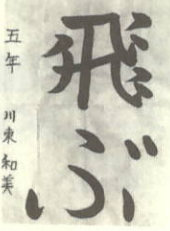 飛ぶ
五年 川東和美